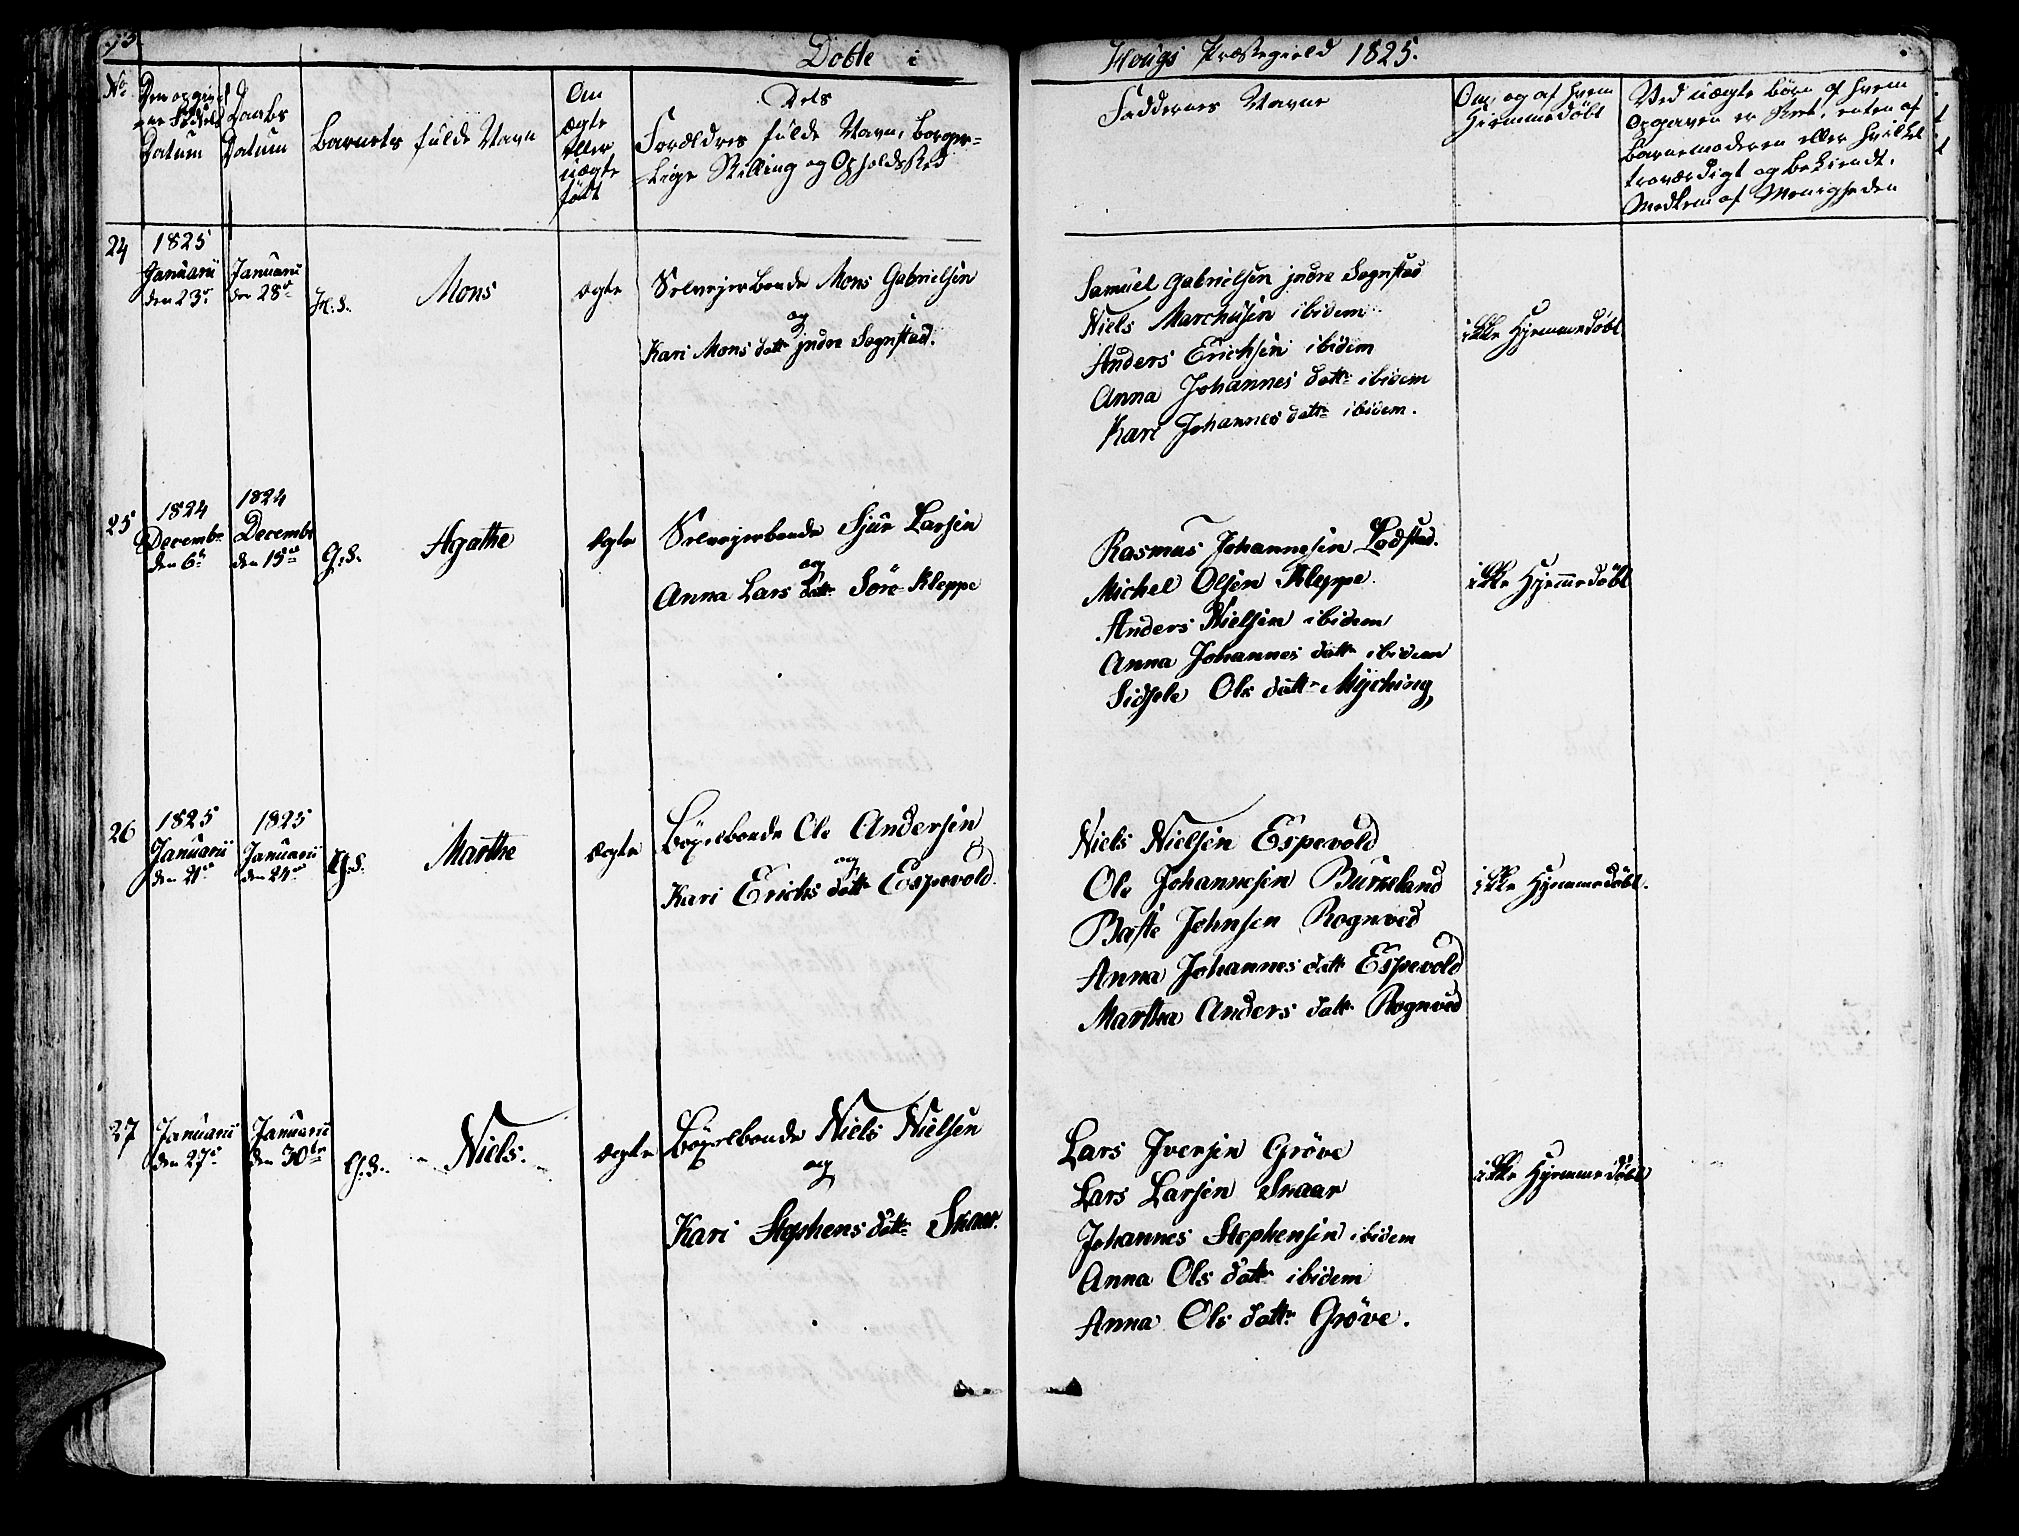 Døbte i Hougs Præstegield 1825.
No
Den opgiv-
ne Fødsels
Datum
Daabs
Datum
Barnets fulde Navn
Om
ægte
eller
uægte
født
Dets
Forældres fulde Navn, borger-
-lige Stilling og Opholdsted
Faddernes Navne
Om, og af hvem
Hiemmedøbt
Ved uægte børn af hvem
Opgaven er skeet, enten af
barnemoderen eller hvilket
troværdigt og bekiendt
Medlem af Menigheden
24
1825
Januarii
den 23de
Januarii
den 28de
Mons
ægte
Selvejerbonde Mons Gabrielsen
og
Kari Mons datr jndre Sognstad.
Samuel Gabrielsen jndre Sognstad
Niels Marchusen ibidem
Anders Erichsen ibidem
Anna Johannes datr ibidem
Kari Johannes datr ibidem.
ikke Hjemmedøbt
25
1824
Decembr
den 6te
1824
Decembr
den 15de
G:S.
Agathe
ægte
Selvejerbonde Sjur Larsen
og
Anna Lars datr Søre Kleppe
Rasmus Johannesen Lodstad.
Michel Olsen Kleppe.
Anders Nielsen ibidem
Anna Johannes datr ibidem
Sidsele Ols datr Myching
ikke Hjemmedøbt
26
1825
Januarii
den 21de
1825
Januarii
den 24de
G:S.
Marthe
ægte
Bøxelbonde Ole Andersen
og
Kari Erichs datr Espevold.
Niels Nielsen Espevold
Ole Johannesen Burkeland
Baste Johnsen Rognved
Anna Johannes datr Espevold
Martha Anders datr Rognved
ikke Hjemmedøbt.
27
Januarii
den 27de
Januarii
den 30te
G:S.
Niels.
ægte
Bøxelbonde Niels Nielsen
og
Kari Stephens datr Skaar.
Lars Iversen Grøve
Lars Larsen Skaar
Johannes Stephensen ibidem
Anna Ols datr ibidem
Anna Ols datr Grøve.
ikke Hjemmedøbt